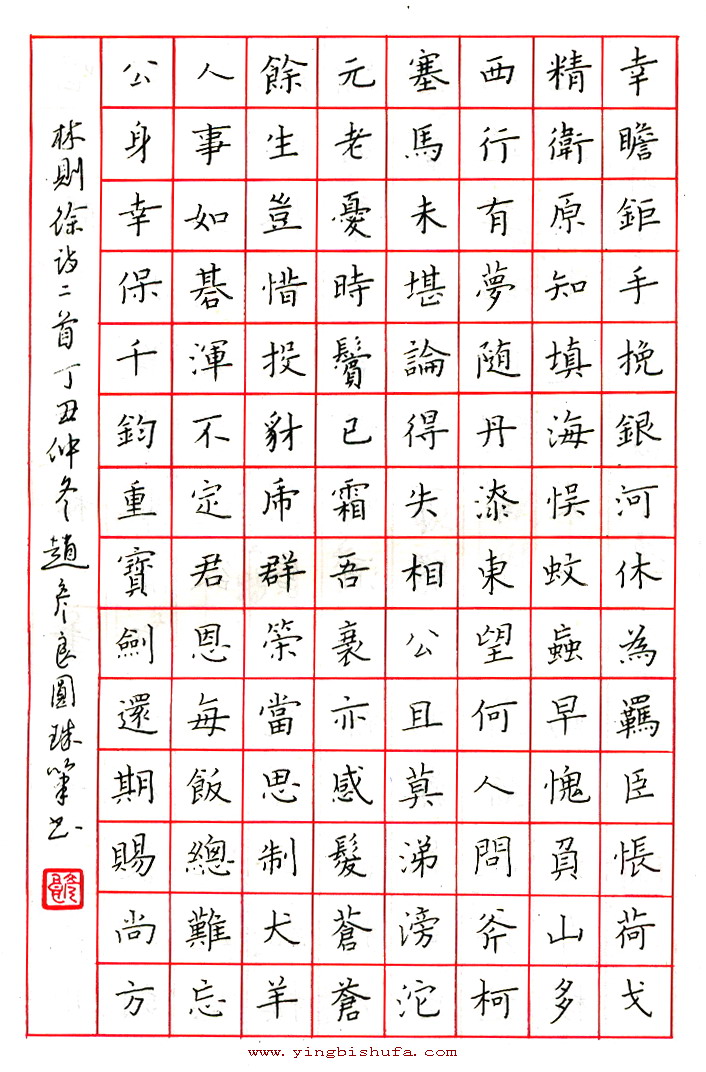 幸瞻鉅手挽銀河休為羈臣悵荷戈
精衛原知填海悞蚊蝱早愧負山多
西行有夢随丹漆東望何人問斧柯
塞馬未堪論得失相公且莫涕滂沱
元老憂時鬢已霜吾衰亦感髮蒼蒼
餘生豈惜投豺虎群策當思制犬羊
人事如棊渾不定君恩每飯總難忘
公身幸保千鈞重寶劍還期賜尚方
林則徐詩二首丁丑仲冬趙彦良圓珠筆書
www.yingbishufa.com